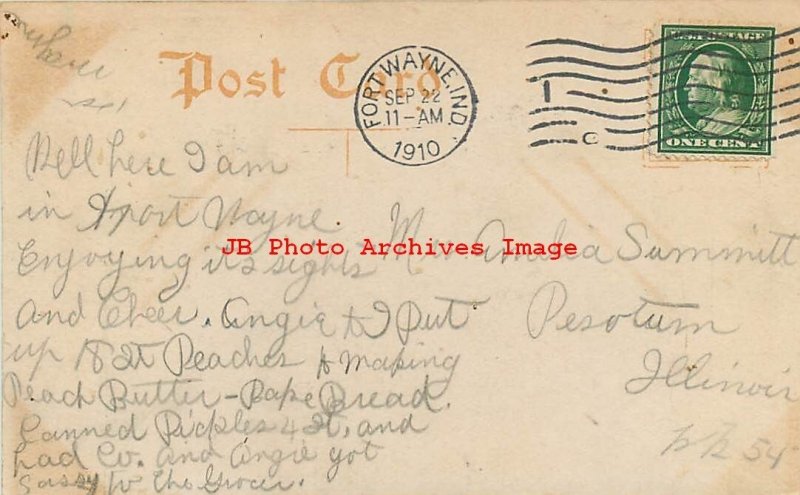 Post Card
FORT WAYNE, IND.
SEP 22
11-AM
1910
U.S. POSTAGE
ONE CENT
Well here I am
in Fort Wayne
Enjoying its sights
and Cheer. Angie & I Put
up 18 qt Peaches & making
Peach Butter - Bake Bread.
Canned Pickles 4 qt, and
had Co. and Angie got
Sassy to the Grocer.
Amelia Summitt
Pesotum
Illinois
54
JB Photo Archives Image